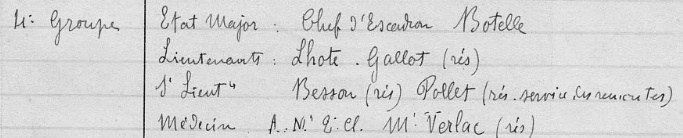 4e Groupe Etat Major : Chef d'Escadron Botelle
Lieutenants : Lhote. Gallot (rés)
S' Lieuts Besson (rés) Pollet (rés. service des remontes)
Médecin A. M. 2e Cl. Mr Verlac (rés)